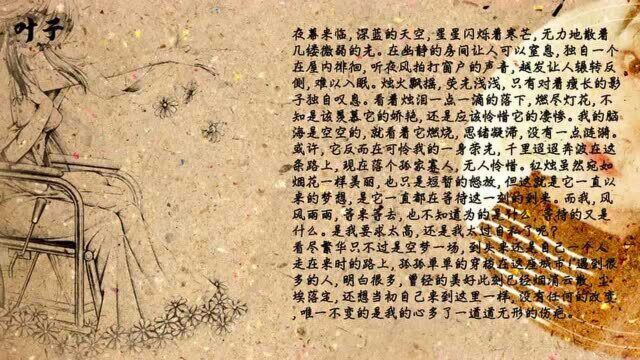 叶子
夜幕来临,深蓝的天空,星星闪烁着寒芒,无力地散着
几缕微弱的光。在幽静的房间让人可以窒息,独自一个
在屋内徘徊,听夜风拍打窗户的声音,越发让人辗转反
侧,难以入眠。烛火飘摇,荧光浅浅,只有对着瘦长的影
子独自叹息。看着烛泪一点一滴的落下,燃尽灯花,不
知是该羡慕它的娇艳,还是应该怜惜它的凄惨。我的脑
海是空空的,就看着它燃烧,思绪凝滞,没有一点涟漪。
或许,它反而在可怜我的一身荣光,千里迢迢奔波在这
条路上,现在落个孤家寡人,无人怜惜。红烛虽然宛如
烟花一样美丽,也只是短暂的怒放,但这就是它一直以
来的梦想,是它一直都在等待这一刻的到来。而我,风
风雨雨,等来等去,也不知道为的是什么,等待的又是
什么。是我要求太高,还是我太过自私了呢?
看尽繁华只不过是空梦一场,到头来还是自己一个人
走在来时的路上,孤孤单单的穿梭在这座城市!遇到很
多的人,明白很多,曾经的美好此刻已经烟消云散,尘
埃落定,还想当初自己来到这里一样,没有任何的改变
,唯一不变的是我的心多了一道道无形的伤疤。